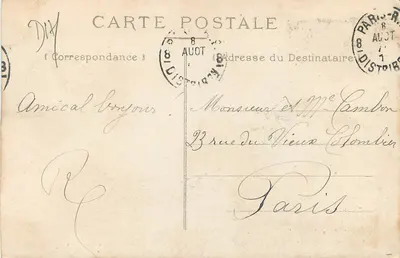 CARTE POSTALE
(Correspondance)
Adresse du Destinataire
8
AOUT
DISTRIB
PARIS-R
8
8
AOUT
DISTRIB
Amical bonjour
R
Monsieur et Mme Cambon
23 rue du Vieux Colombier
Paris